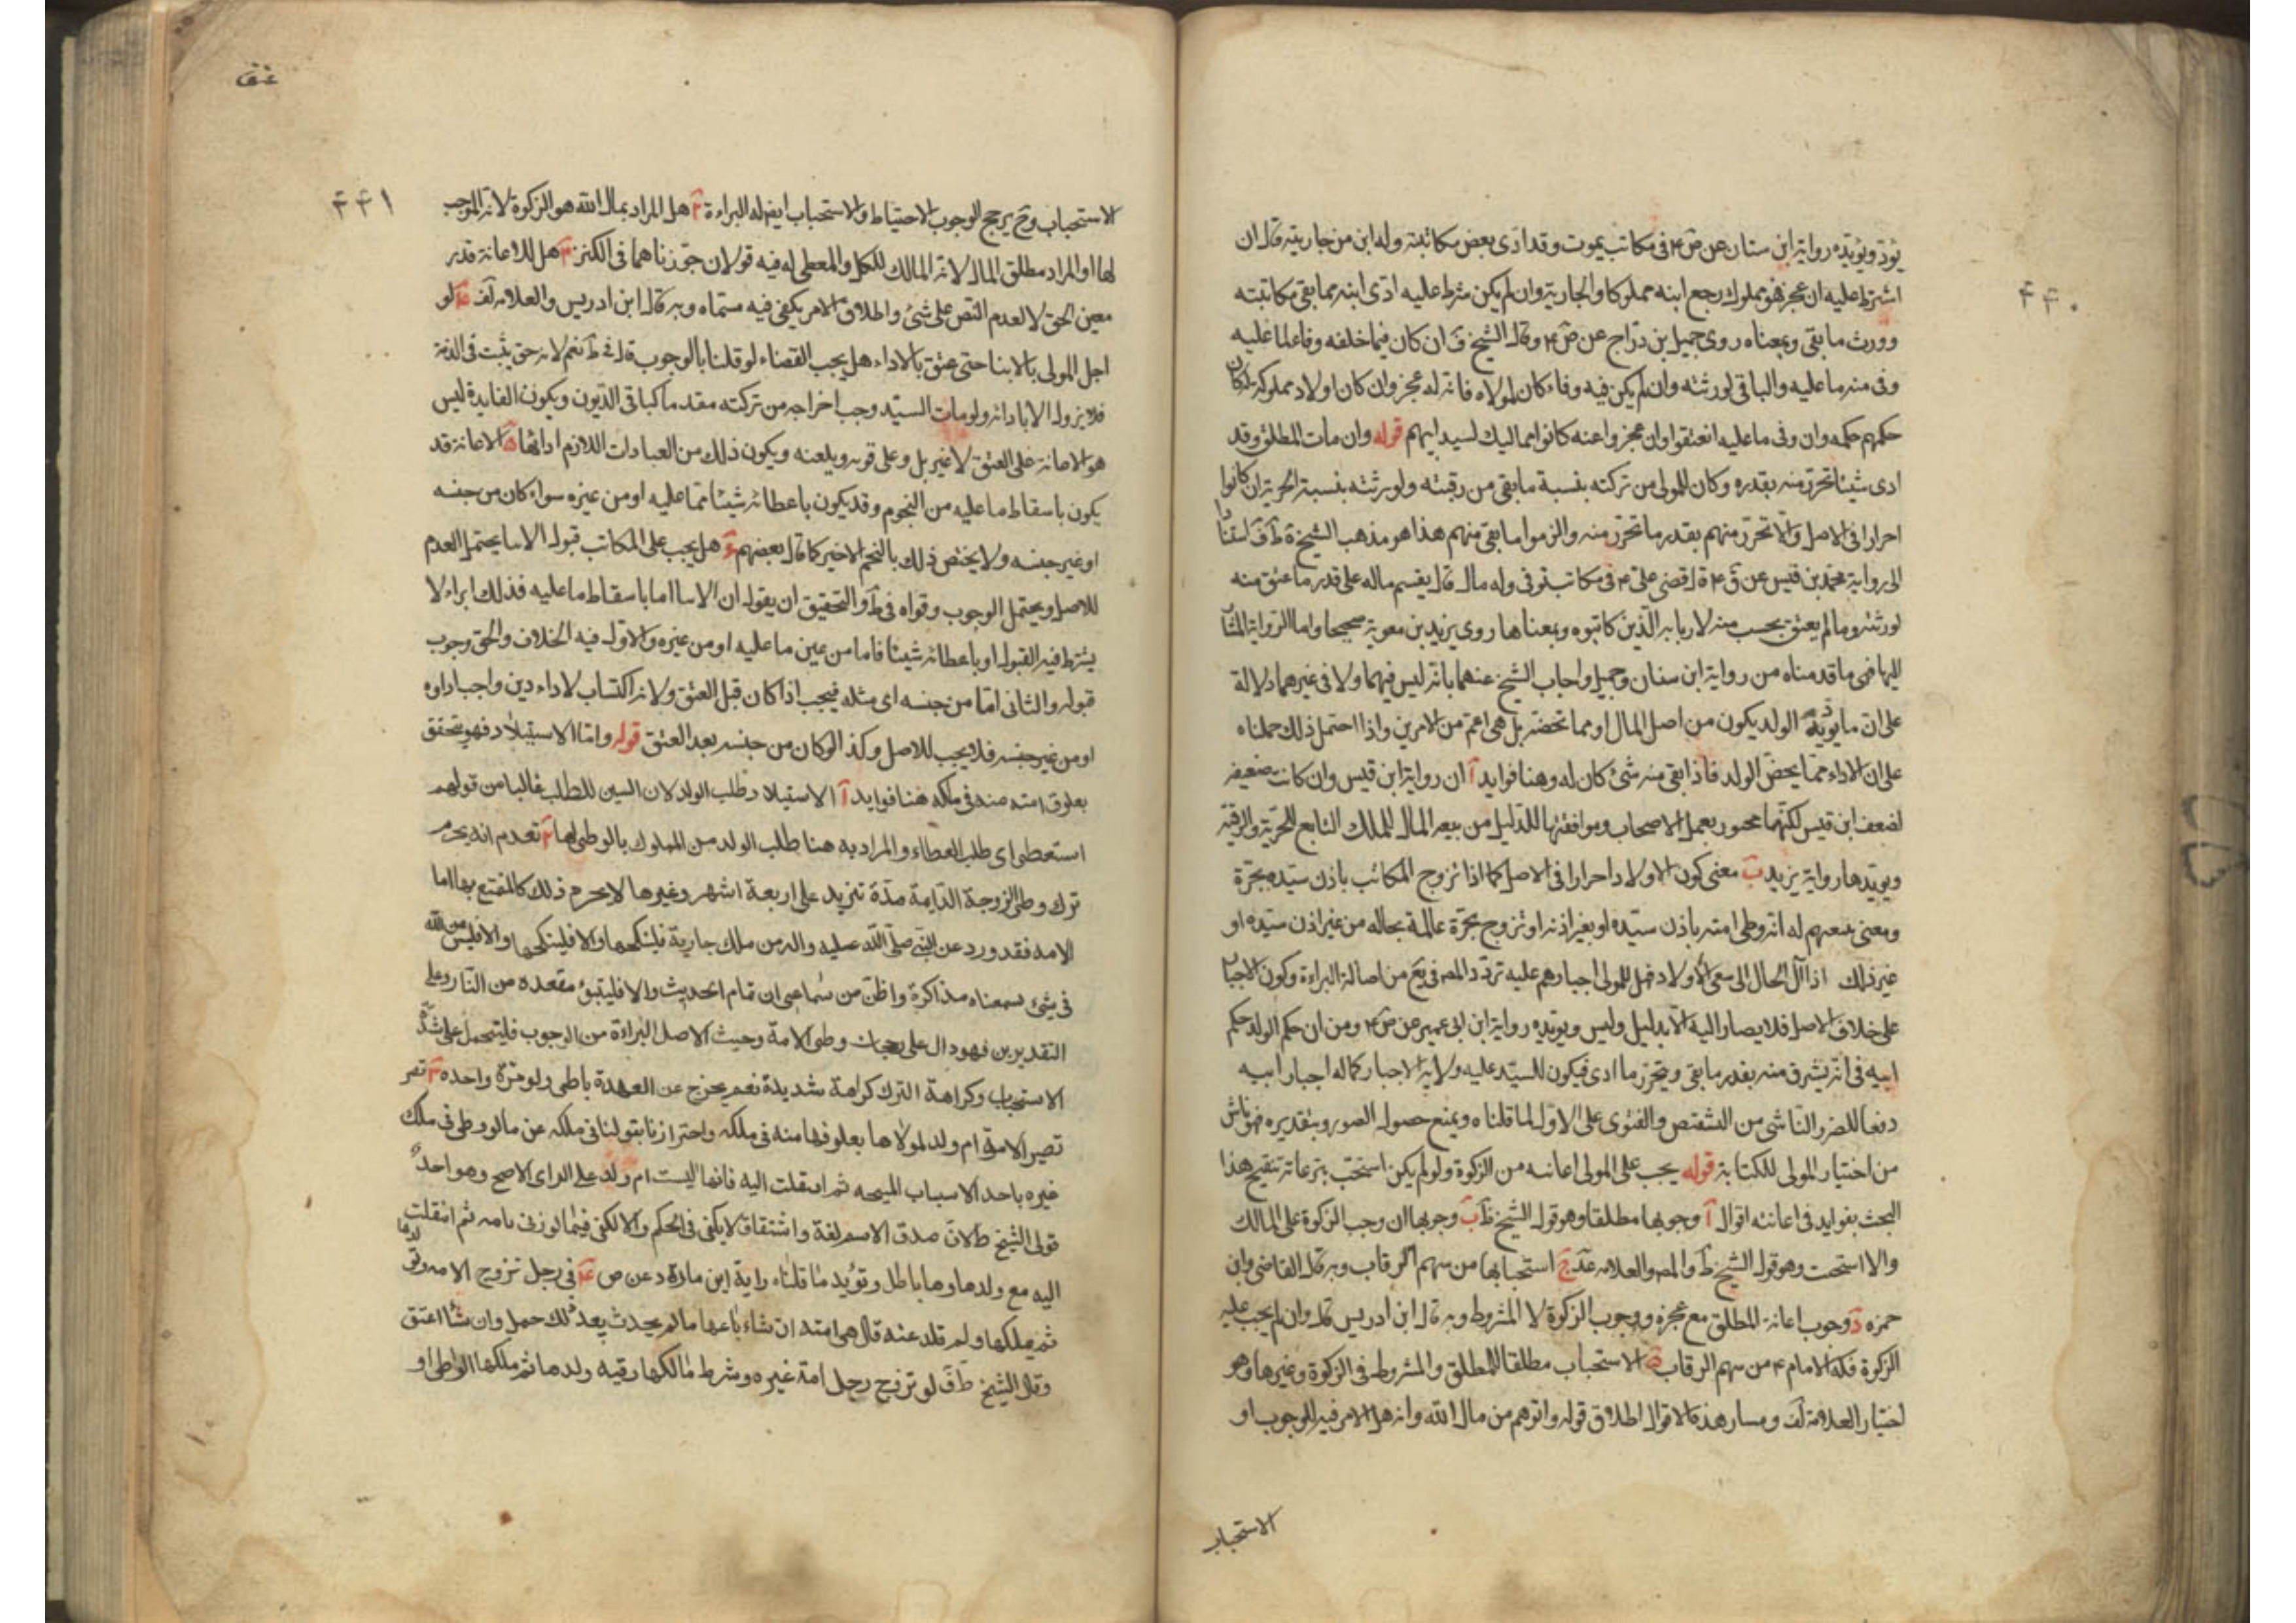 يؤد ويؤيده رواية ابن سنان عن ص ع في مكاتب يموت وقد ادى بعض مكاتبته وله ابن من جاريته قال ان
اشترط عليه ان عجز فهو مملوك رجع ابنه مملوكا والجارية وان لم يكن شرط عليه ادى ابنه مما بقى مكاتبته
وورث ما بقى وبمعناه روى جميل بن دراج عن ص ع وقال الشيخ ف ان كان فيما خلفه وفاء لما عليه
وفى منه ما عليه والباقى لورثته وان لم يكن فيه وفاء كان لمولاه فانه له عجز وان كان اولاد مملوكه كان
حكمهم حكمه وان وفى ما عليه انعتقوا وان عجزوا عنه كانوا مماليك لسيد ابيهم قوله وان مات المطلق وقد
ادى شيئا تحرر منه بقدره وكان للمولى من تركته بنسبة ما بقى من رقبته ولورثته بنسبة الحرية ان كانوا
احرارا فى الاصل والا تحرر منهم بقدر ما تحرر منه والزموا ما بقى منهم هذا هو مذهب الشيخ ط ف استنادا
الى رواية محمد بن قيس عن ق ع قال قضى على ع فى مكاتب توفى وله مال قال يقسم ماله على قدر ما عتق منه
لورثته وما لم يعتق يحسب منه لاربابه الذين كاتبوه وبمعناها روى يزيد بن معوية صحيحا واما الرواية المشار
اليها فهى ما قدمناه من رواية ابن سنان وجميل واجاب الشيخ عنهما بانه ليس فيهما ولا فى غيرهما دلالة
على ان ما يؤديه الولد يكون من اصل المال او مما تخصه بل هى اعم من الامرين واذا احتمل ذلك حملناه
على ان الاداء مما يخص الولد فاذا بقى منه شئ كان له وهنا فوايد آ ان رواية ابن قيس وان كانت ضعيفة
لضعف ابن قيس لكنها مجبور بعمل الاصحاب وموافقتها للدليل من تبعية المال للملك التابع للحرية والرقية
ويؤيدها رواية يزيد ب معنى كون الاولاد احرارا فى الاصل كما اذا تزوج المكاتب باذن سيده بحرة
ومعنى تبعهم له انه وطى امته باذن سيده او بغير اذنه او تزوج بحرة عالمة بحاله من غير اذن سيده او
غير ذلك اذا آل الحال الى سعى الاولاد فهل للمولى اجبارهم عليه تردد المص فى يع من اصالة البراءة وكون الاجبار
على خلاف الاصل فلا يصار اليه الا بدليل وليس ويؤيده رواية ابن ابى عمير عن ص ع ومن ان حكم الولد حكم
ابيه فى انه يسترق منه بقدر ما بقى ويتحرر ما ادى فيكون للسيد عليه ولاية الاجبار كما له اجبار ابيه
دفعا للضرر الناشى من التشقص والفتوى على الاول لما قلناه ويمنع حصول الضرر وبتقديره فهو ناش
من اختيار المولى للكتابة قوله يجب على المولى اعانته من الزكوة ولو لم يكن استحب تبرعا تنقيح هذا
البحث بفوايد فى اعانته اقوال آ وجوبها مطلقا وهو قول الشيخ ف ب وجوبها ان وجب الزكوة على المالك
والا استحبت وهو قول الشيخ ط والمص والعلامه عد ج استحبابها من سهم الرقاب وبه قال القاضى وابن
حمزه د وجوب اعانة المطلق مع عجزه ووجوب الزكوة لا المشروط وبه قال ابن ادريس قال وان لم يجب عليه
الزكوة فكه الامام ع من سهم الرقاب ه الاستحباب مطلقا للمطلق والمشروط فى الزكوة وغيرها وهو
اختيار العلامة لف ومسار هذه الاقوال اطلاق قوله واتوهم من مال الله وانه هل الامر فيه للوجوب او
الاستحباب
٤٤٠
٤٤١
الاستحباب وح يرجح الوجوب الاحتياط والاستحباب ايض له البراءة ٢ هل المراد بمال الله هو الزكوة لانه الموجب
لها او المراد مطلق المال لانه المالك للكل والمعطى له فيه قولان جوزناهما فى الكنز ٣ هل للاعانة قدر
معين الحق لا لعدم النص على شئ واطلاق الامر يكفى فيه مسماه وبه قال ابن ادريس والعلامه لف ٤ لو
اجل المولى بالايتا حتى عتق بالاداء هل يجب القضاء لو قلنا بالوجوب قال فى ط نعم لانه حق يثبت فى الذمة
فلا يزول الا باداءه ولو مات السيد وجب اخراجه من تركته مقدما كباقى الديون ويكون الفايدة ليس
هو الاعانة على العتق لا غير بل وعلى قوته وبلغته ويكون ذلك من العبادات اللازم ادائها ٥ الاعانة قد
يكون باسقاط ما عليه من النجوم وقد يكون باعطائه شيئا مما عليه او من غيره سواء كان من جنسه
او غير جنسه ولا يختص ذلك بالنجم الاخير كما قال بعضهم ٦ هل يجب على المكاتب قبول الايتا يحتمل العدم
للاصل ويحتمل الوجوب وقواه فى ط والتحقيق ان يقول ان الايتا اما باسقاط ما عليه فذلك ابراء لا
يشترط فيه القبول او باعطائه شيئا فاما من عين ما عليه او من غيره والاول فيه الخلاف والحق وجوب
قبوله والثانى اما من جنسه اى مثله فيجب اذا كان قبل العتق ولانه اكتساب لاداء دين واجب اداؤه
او من غير جنسه فلا يجب للاصل وكذا لو كان من جنسه بعد العتق قوله واما الاستيلاد فهو يتحقق
بعلوق امته منه فى ملكه هنا فوايد آ الاستيلاد طلب الولد لان السين للطلب غالبا من قولهم
استعطى اى طلب العطاء والمراد به هنا طلب الولد من المملوك بالوطى لها ٢ تقدم انه يحرم
ترك وطى الزوجة الدايمة مدة تزيد على اربعة اشهر وغيرها لا يحرم ذلك كالمتمتع بها اما
الامه فقد ورد عن النبى صلى الله عليه واله من ملك جارية فلينكحها والا فلينكحها والا فليس من الله
فى شئ سمعناه مذاكرة واظن من سماعى ان تمام الحديث والا فليتبوء مقعده من النار وعلى
التقديرين فهو دال على رجحان وطى الامة وحيث الاصل البراءة من الوجوب فليتحمل على شدة
الاستحباب وكراهة الترك كراهة شديدة نعم يخرج عن العهدة باطى ولو مرة واحده ٣
تصير الامة ام ولد لمولاها بعلوقها منه فى ملكه واحترازنا بقولنا فى ملكه عن ما لو وطى فى ملك
غيره باحد الاسباب المبيحه ثم انتقلت اليه فانها ليست ام ولد على الراى الاصح وهو احد
قولى الشيخ ط لان صدق الاسم لغة واشتقاق لا يكفى فى الحكم والا لكفى فيما لو زنى بامه ثم انتقلت
اليه مع ولدها وها باطل وتؤيد ما قلناه راية ابن مارد عن ص ع فى رجل تزوج الامه وتو لدها
ثم يملكها ولم تلد عنه قال هى امته ان شاء باعها ما لم يحدث بعد ذلك حمل وان شاء اعتق
وقال الشيخ ط ف لو تزوج رجل امة غيره وشرط مالكها رقيه ولدها ثم ملكها الواطى او